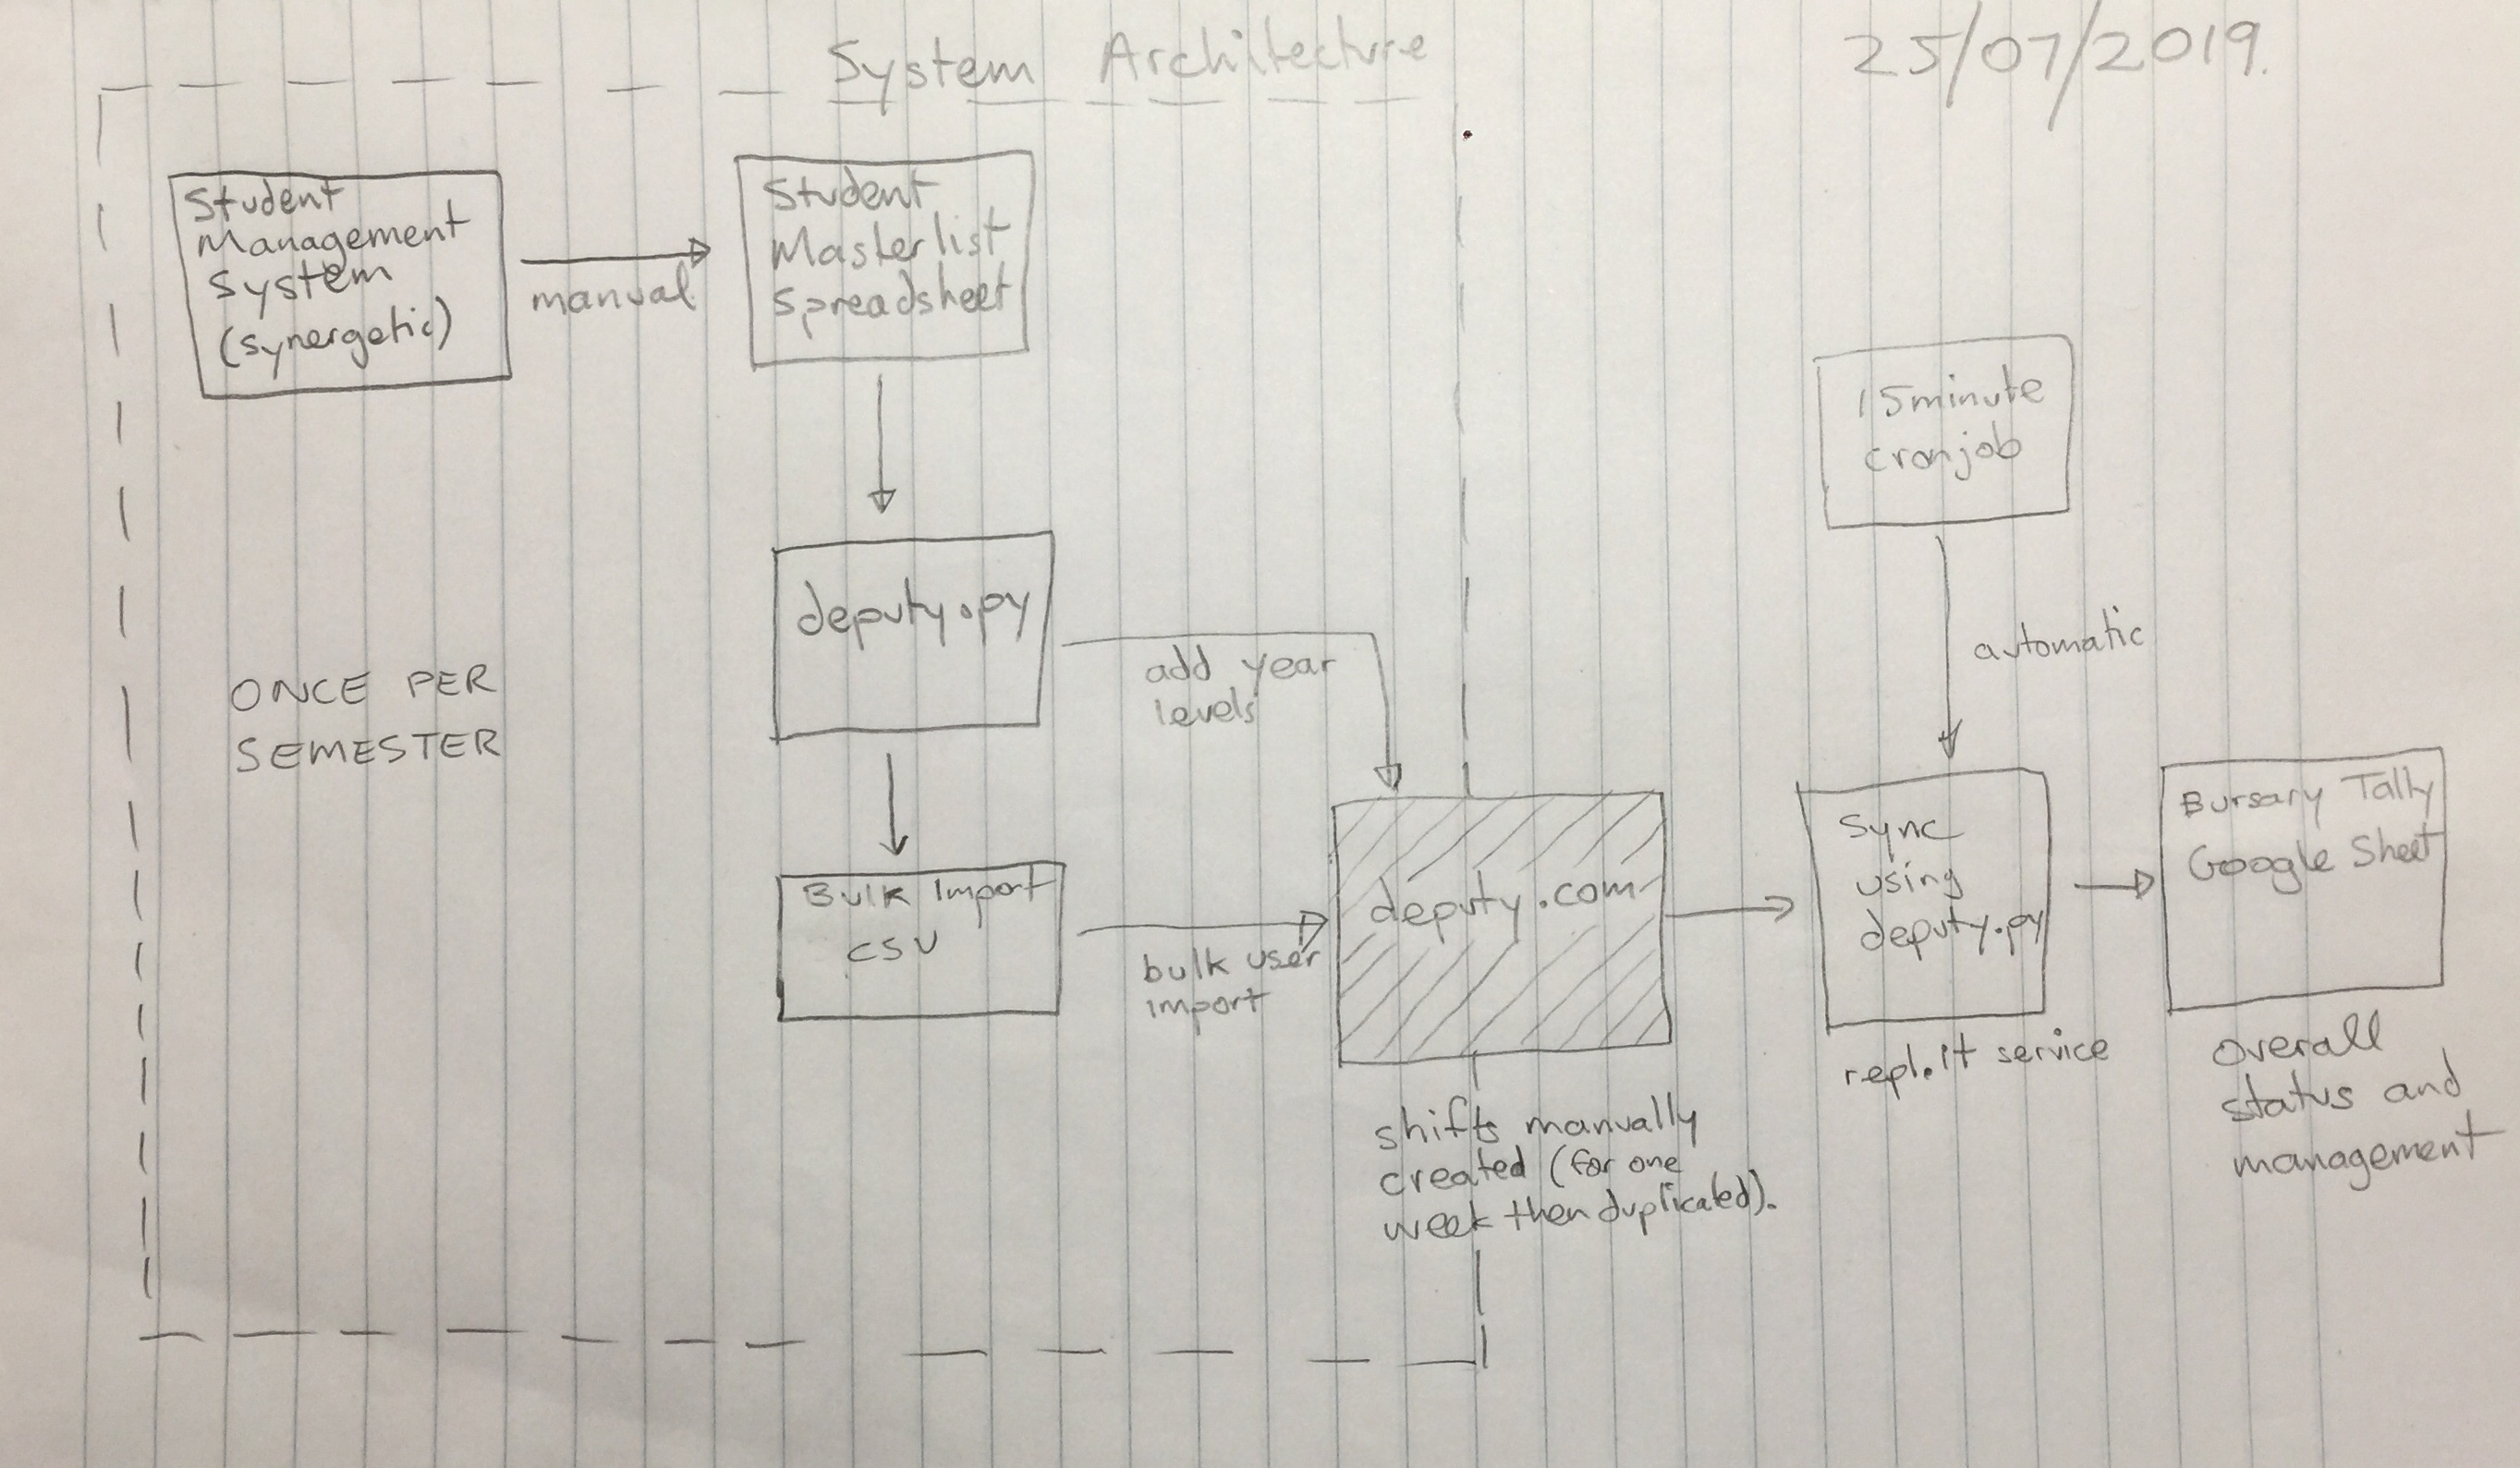 System Architecture
25/07/2019.
Student
Management
System
(synergetic)
manual
Student
Masterlist
Spreadsheet
15minute
cronjob
automatic
deputy.py
add year
levels
ONCE PER
SEMESTER
Bulk Import
CSV
bulk user
import
deputy.com
shifts manually
created (for one
week then duplicated).
Sync
using
deputy.py
repl.it service
Bursary Tally
Google Sheet
overall
status and
management